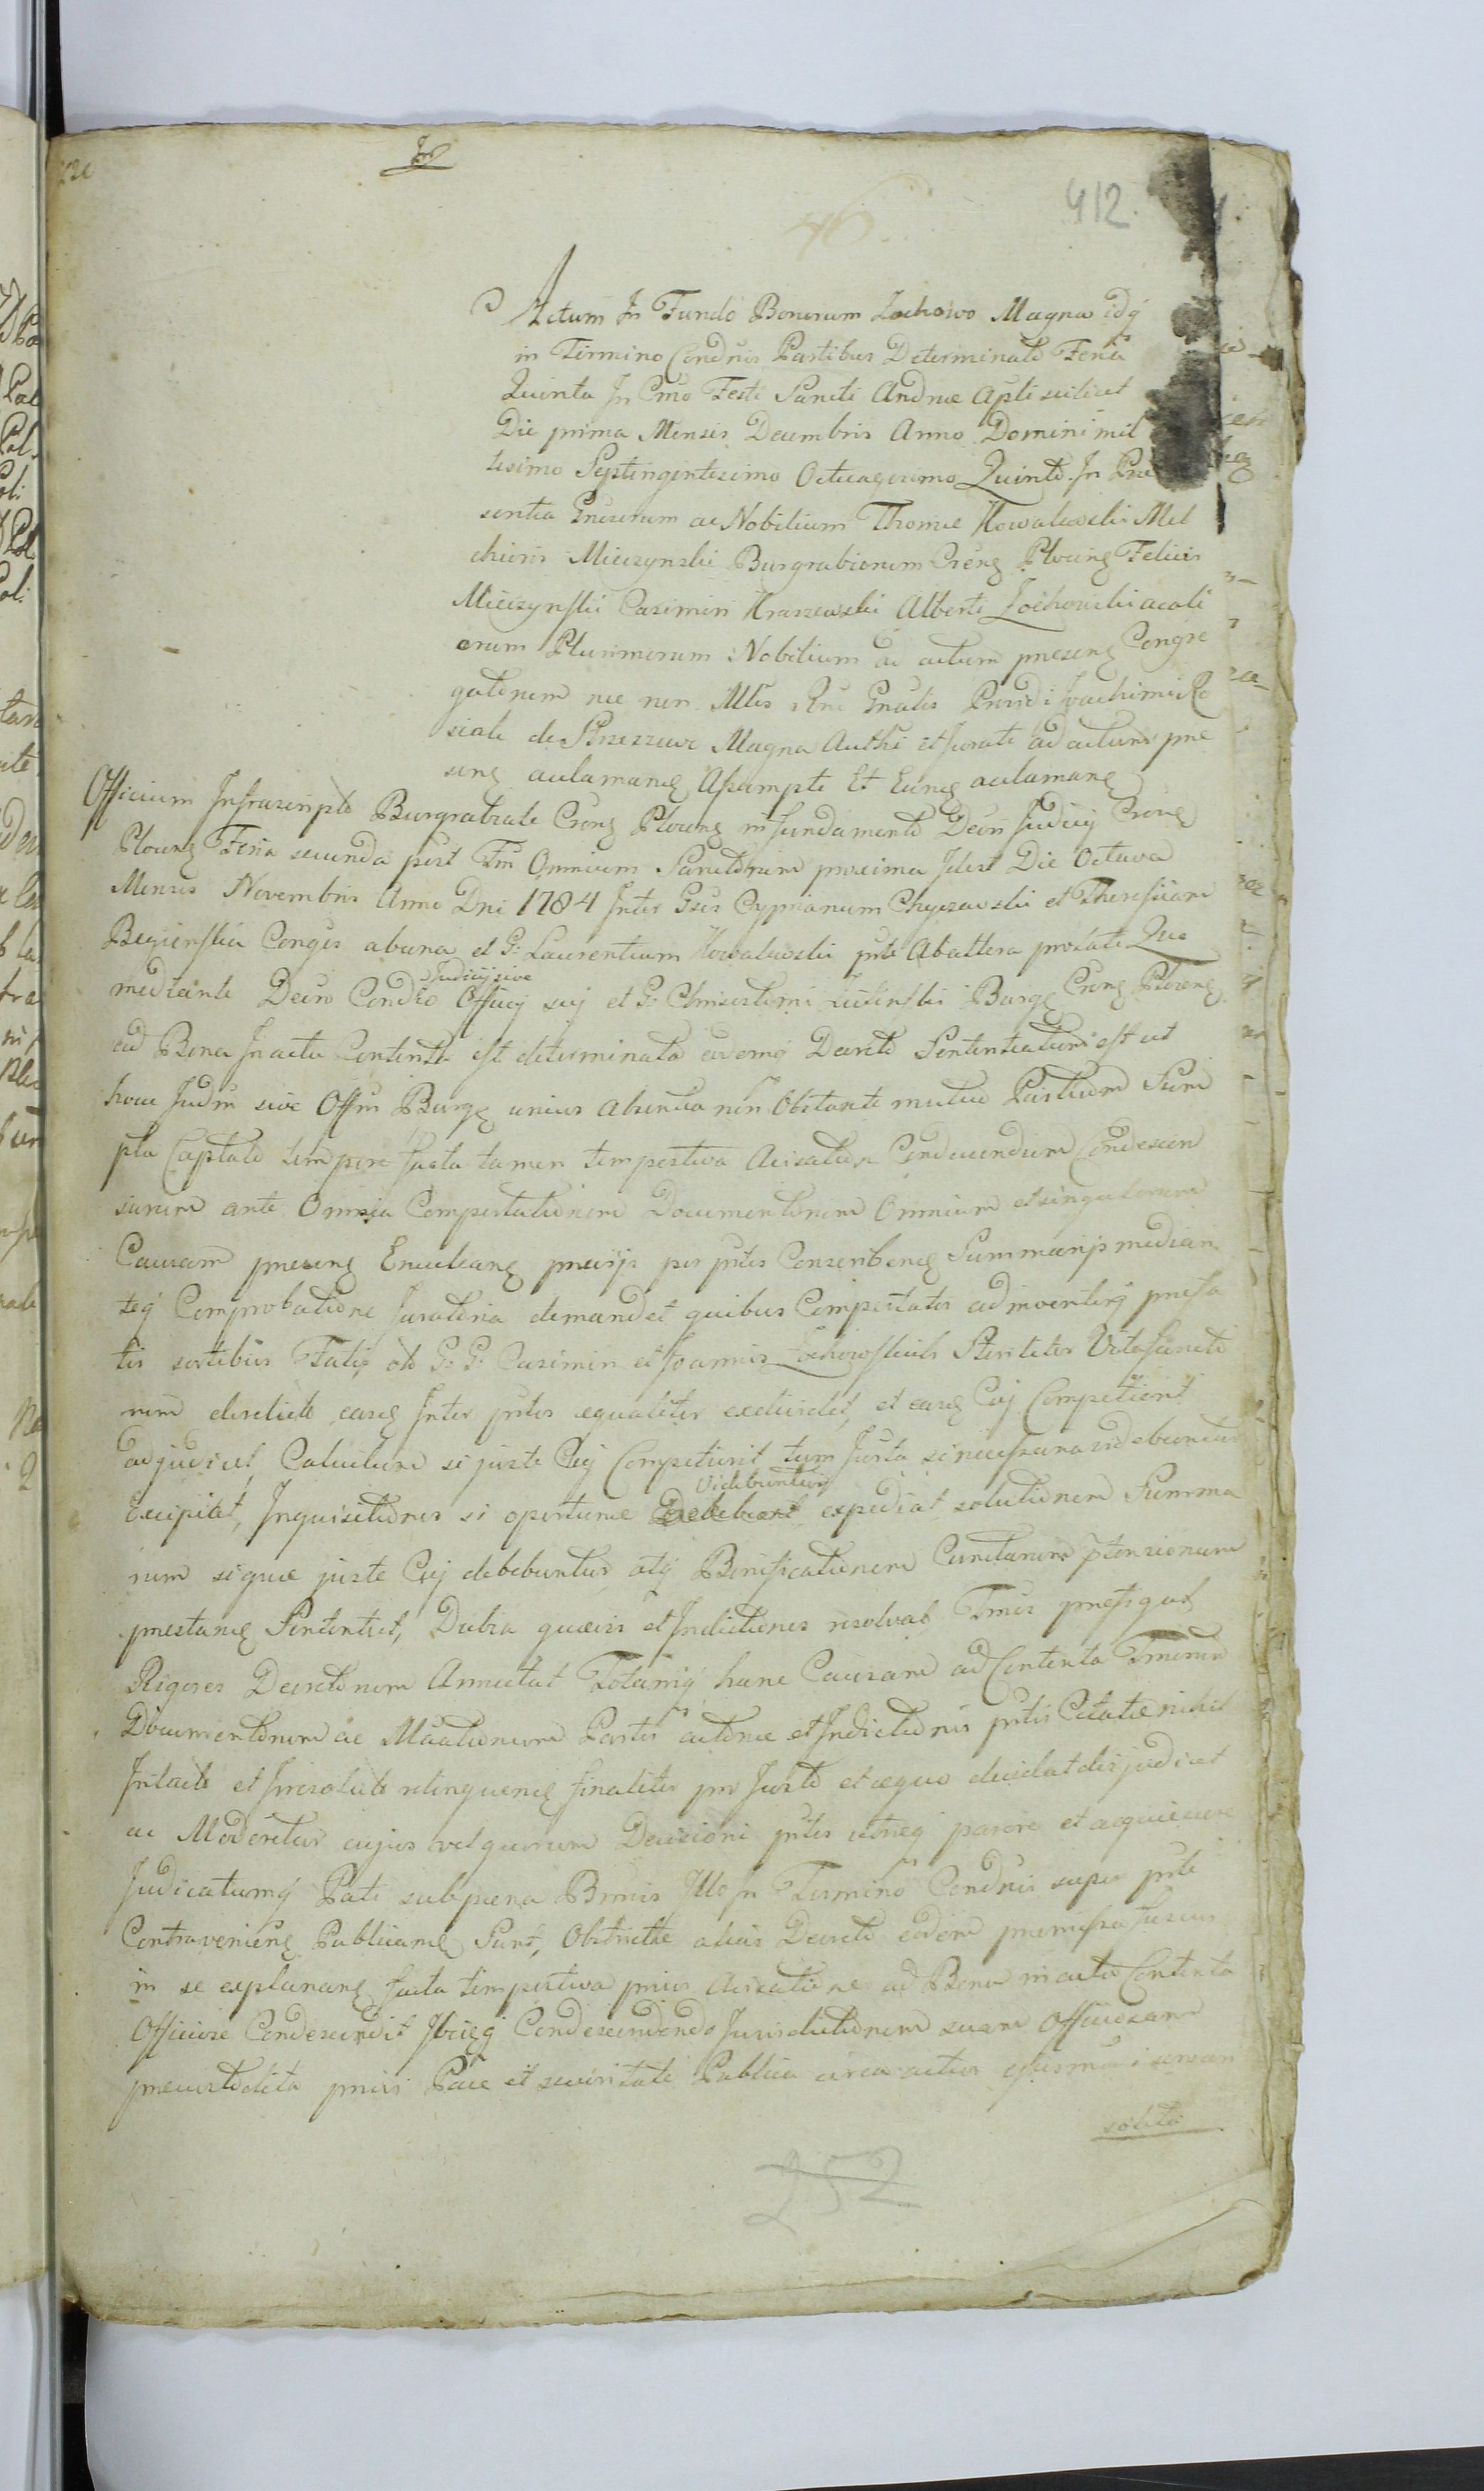 412.
Actum In Fundo Bonorum Zochowo Magna idq
in Termino Condnis Partibus Determinato Feria
Quinta In Cmo Festi Sancti Andreæ Apli scilicet
Die prima Mensis Decembris Anno Domini mil
lesimo Septingentesimo Octuagesimo Quinto. In Præ
sentia Gnrserum ac Nobilium Thomæ Kowalewski Mel
chioris Mieczynski Burgrabiorum Crenq Plocenq Felicis
Mieczynski Casimiri Kraszewski Alberti Zochowski ac ali
orum Plurimorum Nobilium ad actum præsenq Congre
gatorum nec non Mtlis Rni Gnalis Provdi Joachimi Ro
siak de Strzezewo Magna Authi et Jurati ad actum præ
senq aclamanq Assumpti Et Eunq aclamanq
Officium Infrascriptũ Burgrabiale Crenq Plocenq in fundamento Decri Judicij Crenq
Plocenq Feria secunda post Fm Omnium Sanctorum proxima Idest Die Octava
Mensis Novembris Anno Dni 1784 Inter Gsos Cyprianum Chyczewski et Theresiam
Conges ab una et G: Laurentium Kowalewski pte ab altera prolati Quo
mediante Decro Condio Judicij sive Officij sui et G: Burgq Crenq Plocenq
ad Bona In actu Contenta est determinata eodemq Decreto Sententiatum est ut
hocce Judm sive Offm Burgq unius absentia non Obstante mutuo Partium Sum
ptu Captato tempore facta tamen tempestiva Avisatione Conducendum Condescen
surum ante Omnia Comportationem Documentorum Omnium et singulorum
Causam præsenq Enucleanq prævijs per ptes Conscribenq Summarijs median
teq Comprobatione Juratoria demandet quibus Comportatis adinventisq præfa
tis sortibus Fatis, ob G: G: Casimiri et Joannis Zochowskich Steriliter Vita functo
rum derelictis easq Inter ptes æqualiter exdividet, et easq Cuj Competierit
adjudicet, Calculum si juste Cuj Competierit tum Jurta si necessaria videbuntur
Excipiat, Inquisitiones si oportunæ videbuntur expediat solutionem Summa
rum siquæ juste Cuj debebuntur atq Bonificationem Cunctarum ptensionum
præstanq Sententiet, Dubia quævis et Indictiones resolvat Tmos præfigat
Rigores Decretorum Annectat Totamq hanc Causam ad Contenta Tmorum
Documentorum ac Mãationum Partis actoræ et Indictionis ptis Citatæ nihil
Intacti et Irresoluti relinquenq finaliter pro Justo et æquo decidat disjudicet
ac Moderetur cujus vel quorum Decisioni ptes utræq parere et acquiescere
Judicatumq Pati sub pæna Bonis Illo In Termino Condnis super pte
Contravenienq Publicanq Sunt, Obstrictæ alias Decreto eodem præmissa fusius
in se explananq facta tempestiva prius Avisatione ad Bona in actu Contenta
Officiose Condescendit Ibiq Condescendendo Jurisdictionem suam Officiosam
præcustodita prius Pace et securitate Publica circa actus ejusmodi servari
solita
252